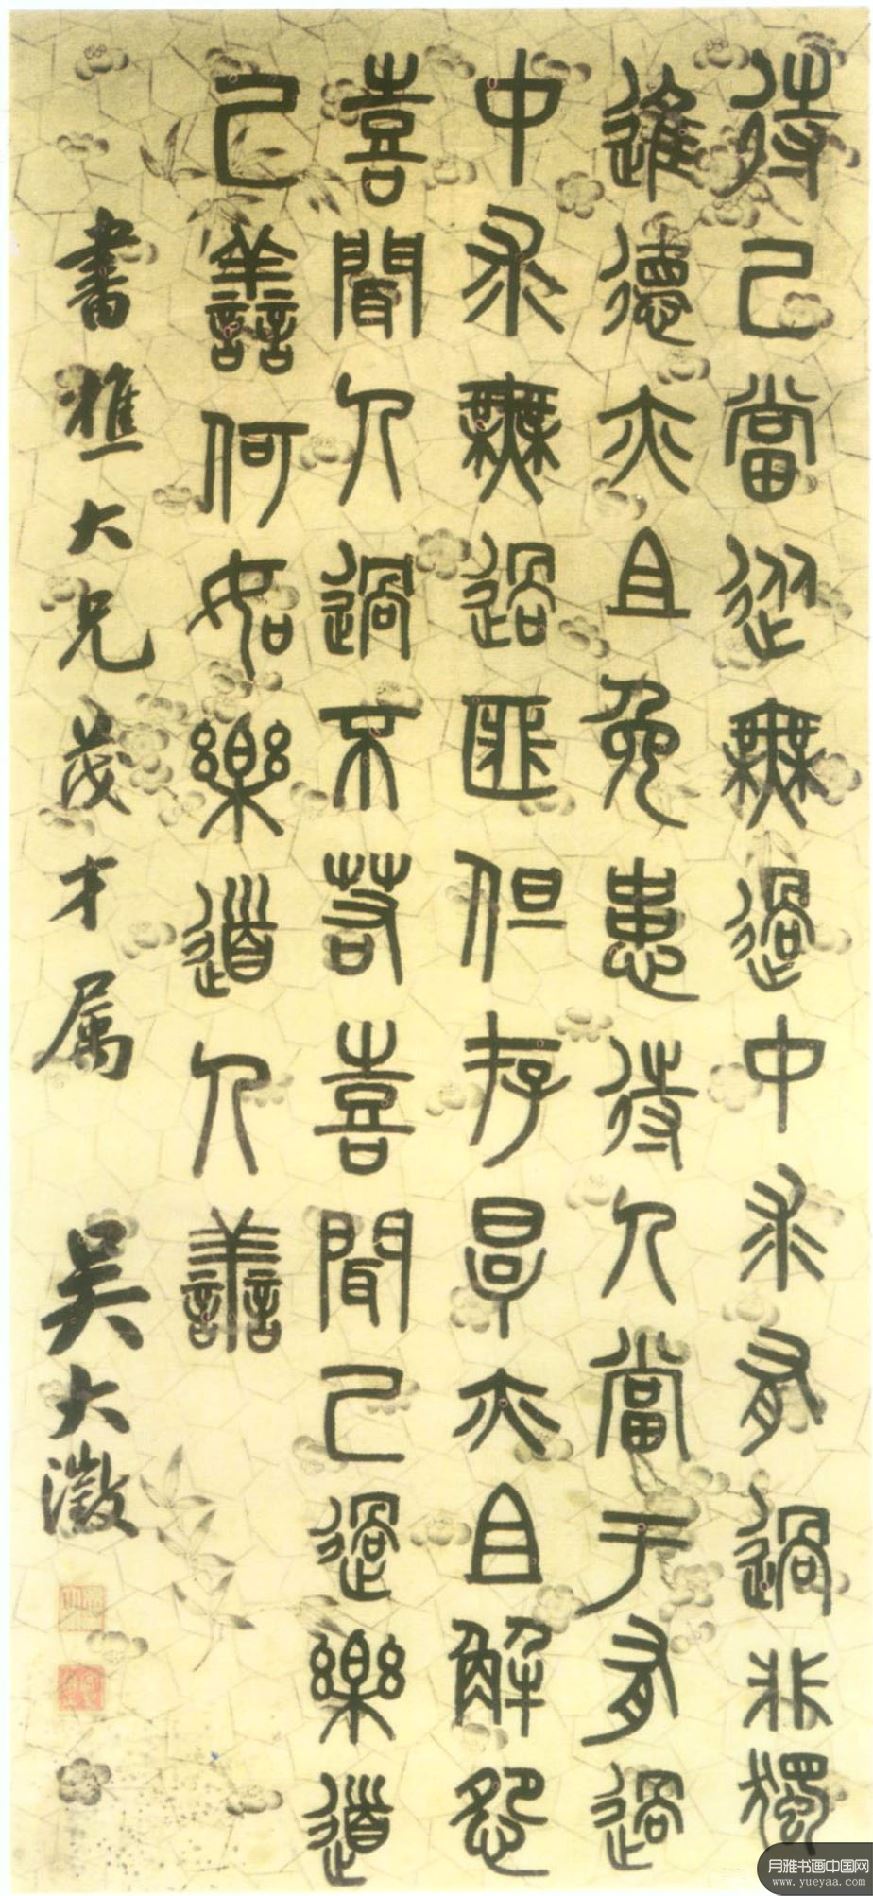 待己當從無過中求有過非獨
進德亦且免患待人當于有過
中求無過匪但存厚亦且解怨
喜聞人過不若喜聞己過樂道
己善何如樂道人善
書樵大兄茂才屬 吳大澂
月雅书画中国网
www.yueyaa.com